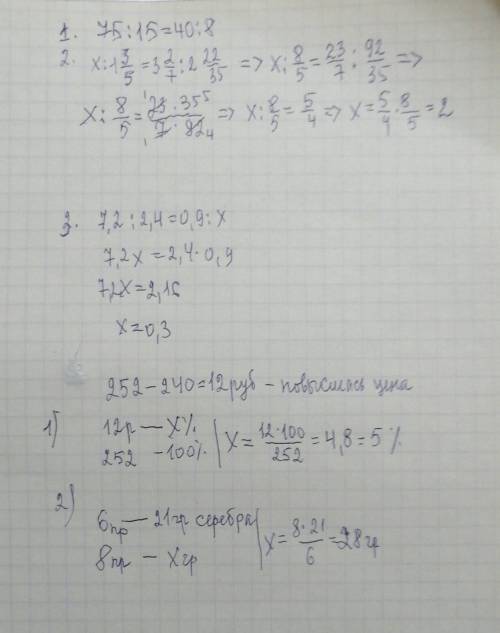 1. 75 : 15 = 40 : 8
2. x : 1 3/5 = 3 2/7 : 2 22/35 => x : 8/5 = 23/7 : 92/35 =>
x : 8/5 = 23 · 35 / 7 · 92 => x : 8/5 = 5/4 => x = 5/4 · 8/5 = 2
3. 7,2 : 2,4 = 0,9 : x
7,2x = 2,4 · 0,9
7,2x = 2,16
x = 0,3
252 - 240 = 12 руб - повысилась цена
1) 12р — x% | x = 12 · 100 / 252 = 4,8 = 5%
252 - 100%
2) 6 пр — 21 гр серебра | x = 8 · 21 / 6 = 28 гр
8 пр — x гр